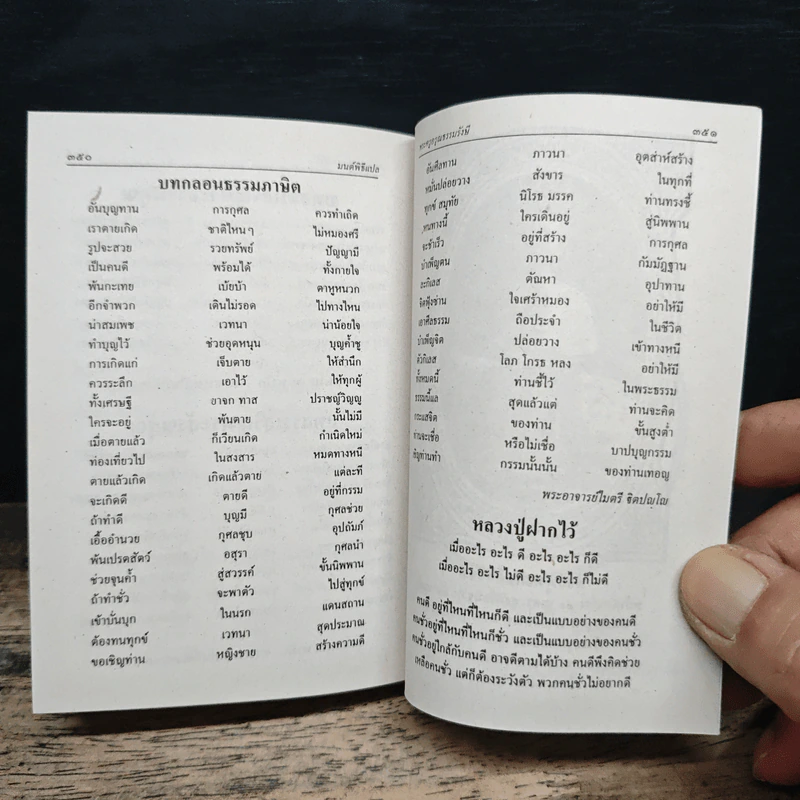 ๓๕๐
มนต์พิธีแปล
บทกลอนธรรมภาษิต
อันบุญทาน การกุศล ควรทำเถิด
เราตายเกิด ชาติไหนๆ ไม่หมองศรี
รูปจะสวย รวยทรัพย์ ปัญญามี
เป็นคนดี พร้อมได้ ทั้งกายใจ
พ้นกะเทย เบ้ยบ้า ตาหูหนวก
อีกจำพวก เดินไม่รอด ไปทางไหน
น่าสมเพช เวทนา น่าน้อยใจ
ทำบุญไว้ ช่วยอุดหนุน บุญค้ำชู
การเกิดแก่ เจ็บตาย ให้สำนึก
ควรระลึก เอาไว้ ให้ทุกผู้
ทั้งเศรษฐี ยาจก ทาส ปราชญ์วิญญู
ใครจะอยู่ พ้นตาย นั้นไม่มี
เมื่อตายแล้ว ก็เวียนเกิด กำเนิดใหม่
ท่องเที่ยวไป ในสงสาร หมดทางหนี
ตายแล้วเกิด เกิดแล้วตาย แต่ละที
จะเกิดดี ตายดี อยู่ที่กรรม
ถ้าทำดี บุญมี กุศลช่วย
เอื้ออำนวย กุศลชุบ อุปถัมภ์
พ้นเปรตสัตว์ อสุรา กุศลนำ
ช่วยจุนค้ำ สู่สวรรค์ ชั้นนิพพาน
ถ้าทำชั่ว จะพาตัว ไปสู่ทุกข์
เข้าบั่นบุก ในนรก แดนสถาน
ต้องทนทุกข์ เวทนา สุดประมาณ
ขอเชิญท่าน หญิงชาย สร้างความดี
พระครูอรุณธรรมรังษี
๓๕๑
อันศีลทาน ภาวนา อุตส่าห์สร้าง
หมั่นปล่อยวาง สังขาร ในทุกที่
ทุกข์ สมุทัย นิโรธ มรรค ท่านทรงชี้
หนทางนี้ ใครเดินอยู่ สู่นิพพาน
จะช้าเร็ว อยู่ที่สร้าง การกุศล
บำเพ็ญตน ภาวนา กัมมัฏฐาน
ละกิเลส ตัณหา อุปาทาน
จิตฟุ้งซ่าน ใจเศร้าหมอง อย่าให้มี
เอาศีลธรรม ถือประจำ ในชีวิต
บำเพ็ญจิต ปล่อยวาง เข้าทางหนี
ตัวกิเลส โลภ โกรธ หลง อย่าให้มี
ทั้งหมดนี้ ท่านชี้ไว้ ในพระธรรม
ธรรมนี้แล สุดแล้วแต่ ท่านจะคิด
กระแสจิต ของท่าน ขั้นสูงต่ำ
ท่านจะเชื่อ หรือไม่เชื่อ บาปบุญกรรม
เชิญท่านทำ กรรมนั้นนั้น ของท่านเทอญ
พระอาจารย์ไมตรี ฐิตปญฺโญ
หลวงปู่ฝากไว้
เมื่ออะไร อะไร ดี อะไร อะไร ก็ดี
เมื่ออะไร อะไร ไม่ดี อะไร อะไร ก็ไม่ดี
คนดี อยู่ที่ไหนที่ไหนก็ดี และเป็นแบบอย่างของคนดี
คนชั่วอยู่ที่ไหนที่ไหนก็ชั่ว และเป็นแบบอย่างของคนชั่ว
คนชั่วอยู่ใกล้กับคนดี อาจดีตามได้บ้าง คนดีพึงคิดช่วย
เหลือคนชั่ว แต่ก็ต้องระวังตัว พวกคนชั่วไม่อยากดี